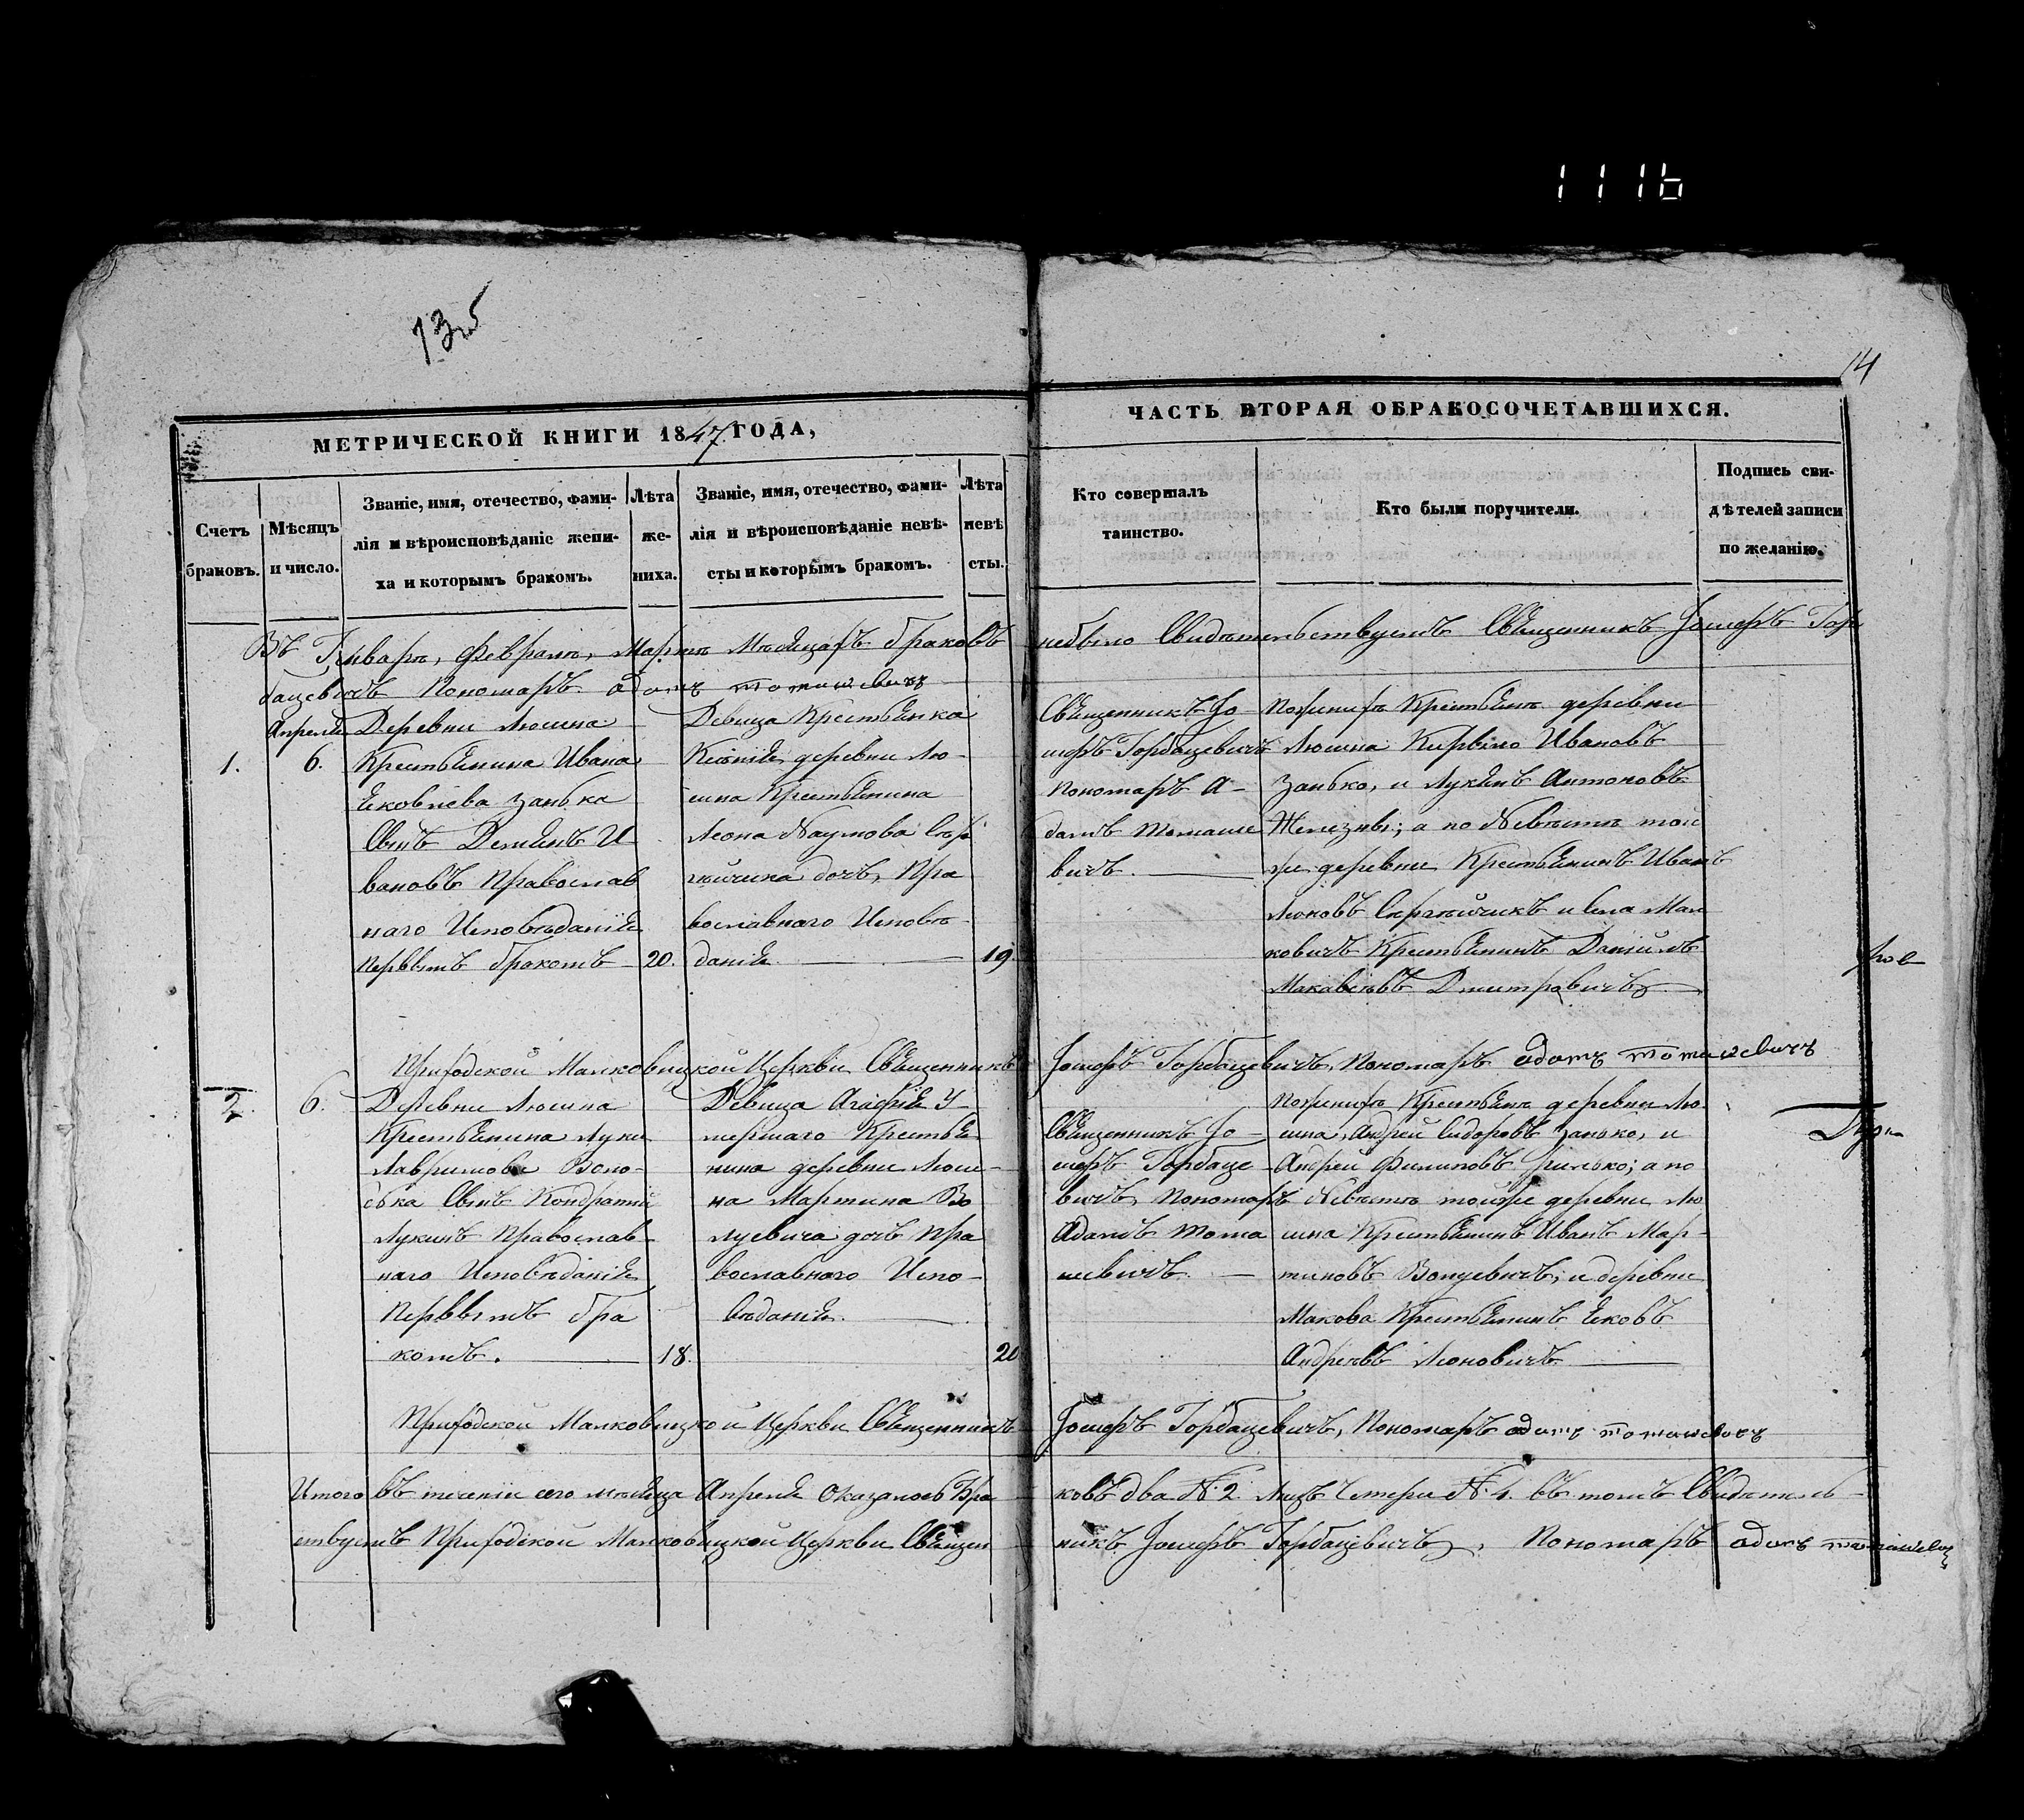 1116
135
14
МЕТРИЧЕСКОЙ КНИГИ 1847 ГОДА,
ЧАСТЬ ВТОРАЯ ОБРАКОСОЧЕТАВШИХСЯ.
Счетъ
браковъ.
Мѣсяцъ
и число.
Званіе, имя, отечество, фами-
лія и вѣроисповѣданіе жени-
ха и которымъ бракомъ.
Лѣта
же-
ниха.
Званіе, имя, отечество, фами-
лія и вѣроисповѣданіе невѣ-
сты и которымъ бракомъ.
Лѣта
невѣ
сты.
Кто совершалъ
таинство.
Кто были поручители.
Подпись сви-
дѣтелей записи
по желанію.
Въ Генварѣ, Февралѣ, Мартѣ Мѣсяцахъ браковъ небыло Свидѣтельствуетъ Священникъ Іосифъ Гор
бацевичъ Пономаръ адамъ томашевичъ
1.
Апреля
6.
Деревни Люсина
Крестьянина Ивана
Яковлева Занька
Сынъ Демянъ И
вановъ Православ
наго Исповѣданія
Первымъ бракомъ
20.
Девица Крестьянка
Ксенія деревни Лю-
сина Крестьянина
Леона Наумова Сер
гѣйчика дочъ, Пра
вославнаго Исповѣ-
данія.
19.
Священникъ Іо-
сифъ Горбацевичъ
Пономаръ А-
дамъ Томаше
вичъ.
По женихѣ Крестьянѣ деревни
Люсина Кирыло Ивановъ
Занько, и Лукянъ Антоновъ
Железны; а по Невѣстѣ той
же деревни Крестьянинъ Иванъ
Леоновъ Сергѣйчикъ и Села Мал
ковичъ Крестьянинъ Даніилъ
Макавѣевъ Дмитровичъ
Приходской Малковицкой Церкви Священникъ Іосифъ Горбацевичъ, Пономаръ адамъ томашевичъ
2.
6.
Деревни Люсина
Крестьянина Луки
Лавринова Воло-
ська Сынъ Кондратій
Лукинъ Православ-
наго Исповѣданія
Первымъ бра
комъ.
18.
Девица Агафія У-
мершаго Крестья
нина деревни Люси-
на Мартина Во
луевича дочъ Пра
вославнаго Испо-
вѣданія.
20
Священникъ Іо-
сифъ Горбаце-
вичъ, Пономаръ
Адамъ Тома
шевичъ.
По женихѣ Крестьянѣ деревни Лю-
сина, Андрей Сидоровъ Занько, и
Андрей Филиповъ Гринько; а по
Невѣстѣ тойже деревни Лю
сина Крестьянинъ Иванъ Мар-
тиновъ Волуевичъ, и деревни
Макова Крестьянинъ Яковъ
Андреевъ Леоновичъ
Приходской Малковицкой Церкви Священникъ Іосифъ Горбацевичъ, Пономаръ адамъ томашевичъ
Итого въ теченіи сего мѣсяца Апреля Оказалось Бра ковъ два №. 2. Лицъ Четыри №. 4. въ томъ Свидѣтель-
ствуетъ Приходской Малковицкой Церкви Священ никъ Іосифъ Горбацевичъ, Пономаръ адамъ томашевичъ